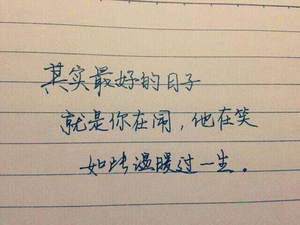 其实最好的日子
就是你在闹，他在笑
如此温暖过一生.